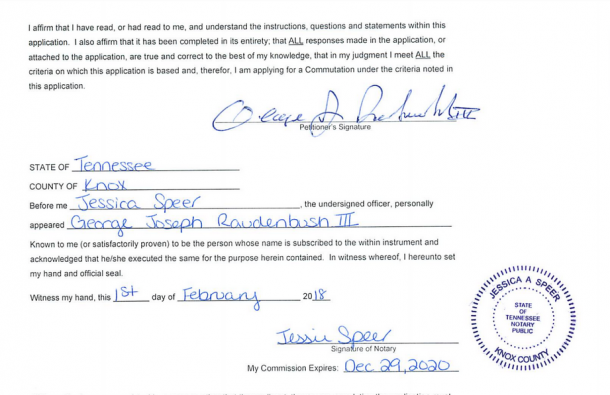 I affirm that I have read, or had read to me, and understand the instructions, questions and statements within this
application. I also affirm that it has been completed in its entirety; that ALL responses made in the application, or
attached to the application, are true and correct to the best of my knowledge, that in my judgment I meet ALL the
criteria on which this application is based and, therefor, I am applying for a Commutation under the criteria noted in
this application.
Petitioner's Signature
STATE OF Tennessee
COUNTY OF Knox
Before me Jessica Speer, the undersigned officer, personally
appeared George Joseph Raudenbush III
Known to me (or satisfactorily proven) to be the person whose name is subscribed to the within instrument and
acknowledged that he/she executed the same for the purpose herein contained. In witness whereof, I hereunto set
my hand and official seal.
Witness my hand, this 1st day of February 2018
JESSICA A SPEER
STATE
OF
TENNESSEE
NOTARY
PUBLIC
KNOX COUNTY
Jessie Speer
Signature of Notary
My Commission Expires: Dec 29, 2020